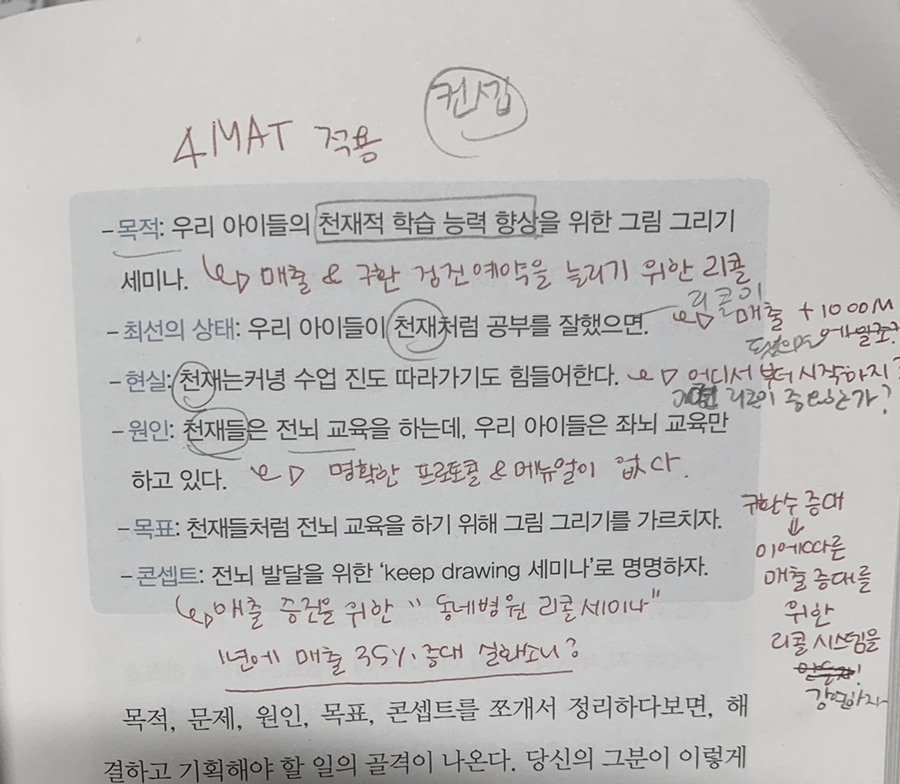 컨셉
4MAT 적용
– 목적: 우리 아이들의 천재적 학습 능력 향상을 위한 그림 그리기
세미나. 매출 & 구환 검진예약을 늘리기 위한 리콜
– 최선의 상태: 우리 아이들이 천재처럼 공부를 잘했으면.
리콜이
매출 +1000M
– 현실: 천재는커녕 수업 진도 따라가기도 힘들어한다. 어디서부터 시작하지?
리콜이 중요한가?
– 원인: 천재들은 전뇌 교육을 하는데, 우리 아이들은 좌뇌 교육만
하고 있다. 명확한 프로토콜 & 메뉴얼이 없다.
– 목표: 천재들처럼 전뇌 교육을 하기 위해 그림 그리기를 가르치자.
구환수 증대
이에따른
매출 증대를
위한
리콜 시스템을
만들자!
강의하자
– 콘셉트: 전뇌 발달을 위한 ‘keep drawing 세미나’로 명명하자.
매출 증진을 위한 "동네병원 리콜세미나"
1년에 매출 35% 증대 실화소니?
목적, 문제, 원인, 목표, 콘셉트를 쪼개서 정리하다보면, 해
결하고 기획해야 할 일의 골격이 나온다. 당신의 그분이 이렇게